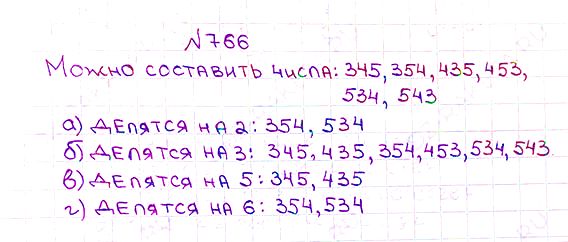 №766
Можно составить числа: 345, 354, 435, 453,
534, 543
а) делятся на 2: 354, 534
б) делятся на 3: 345, 435, 354, 453, 534, 543
в) делятся на 5: 345, 435
г) делятся на 6: 354, 534